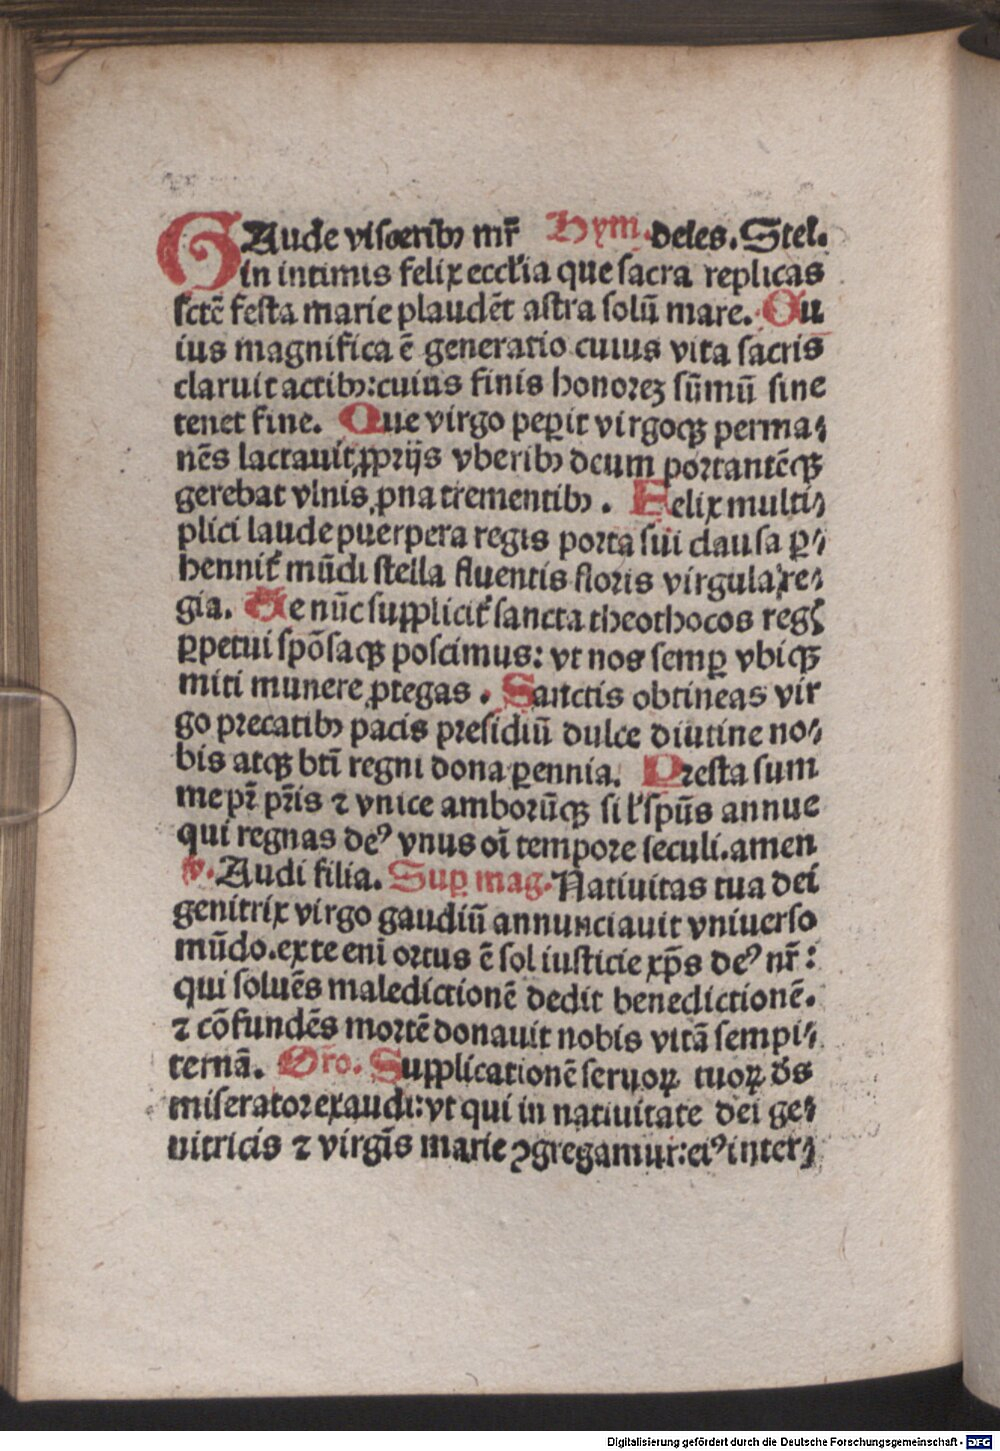 GAude visceribꝰ mr̄ Hym. deles. Stel.
in intimis felix eccl'ia que sacra replicas
sctē festa marie plaudēt astra solū mare. Cu
ius magnifica ē generatio cuius vita sacris
claruit actibꝰ: cuius finis honorēꝫ sūmū sine
tenet fine. Que virgo peꝑit virgoqꝫ perma⸗
nēs lactauit ꝓprijs vberibꝰ deum portantēqꝫ
gerebat vlnis ꝓna trementibꝰ. Felix multi⸗
plici laude puerpera regis porta sui clausa ꝑ⸗
hennit' mūdi stella fluentis floris virgula re⸗
gia. Te nūc supplicit' sancta theothocos regꝭ
ꝑpetui spōsaqꝫ poscimus: vt nos semꝑ vbiqꝫ
miti munere ꝓtegas. Sanctis obtineas vir
go precatibꝰ pacis presidiū dulce diutine no⸗
bis atqꝫ btī regni dona ꝑennia. Presta sum
me pr̄ pr̄is ⁊ vnice amborūqꝫ sil' spūs annue
qui regnas deꝰ vnus oī tempore seculi. amen
℣. Audi filia. Suꝑ mag. Natiuitas tua dei
genitrix virgo gaudiū annunciauit vniuerso
mūdo. ex te enī ortus ē sol iusticie xp̄s deꝰ nr̄:
qui soluēs maledictionē dedit benedictionē.
⁊ cōfundēs mortē donauit nobis vitā sempi⸗
ternā. Oro. Supplicationē seruoꝝ tuoꝝ d̄s
miserator exaudi: vt qui in natiuitate dei ge⸗
nitricis ⁊ virgīs marie ꝯgregamur: eiꝰ inter⸗
Digitalisierung gefördert durch die Deutsche Forschungsgemeinschaft - DFG